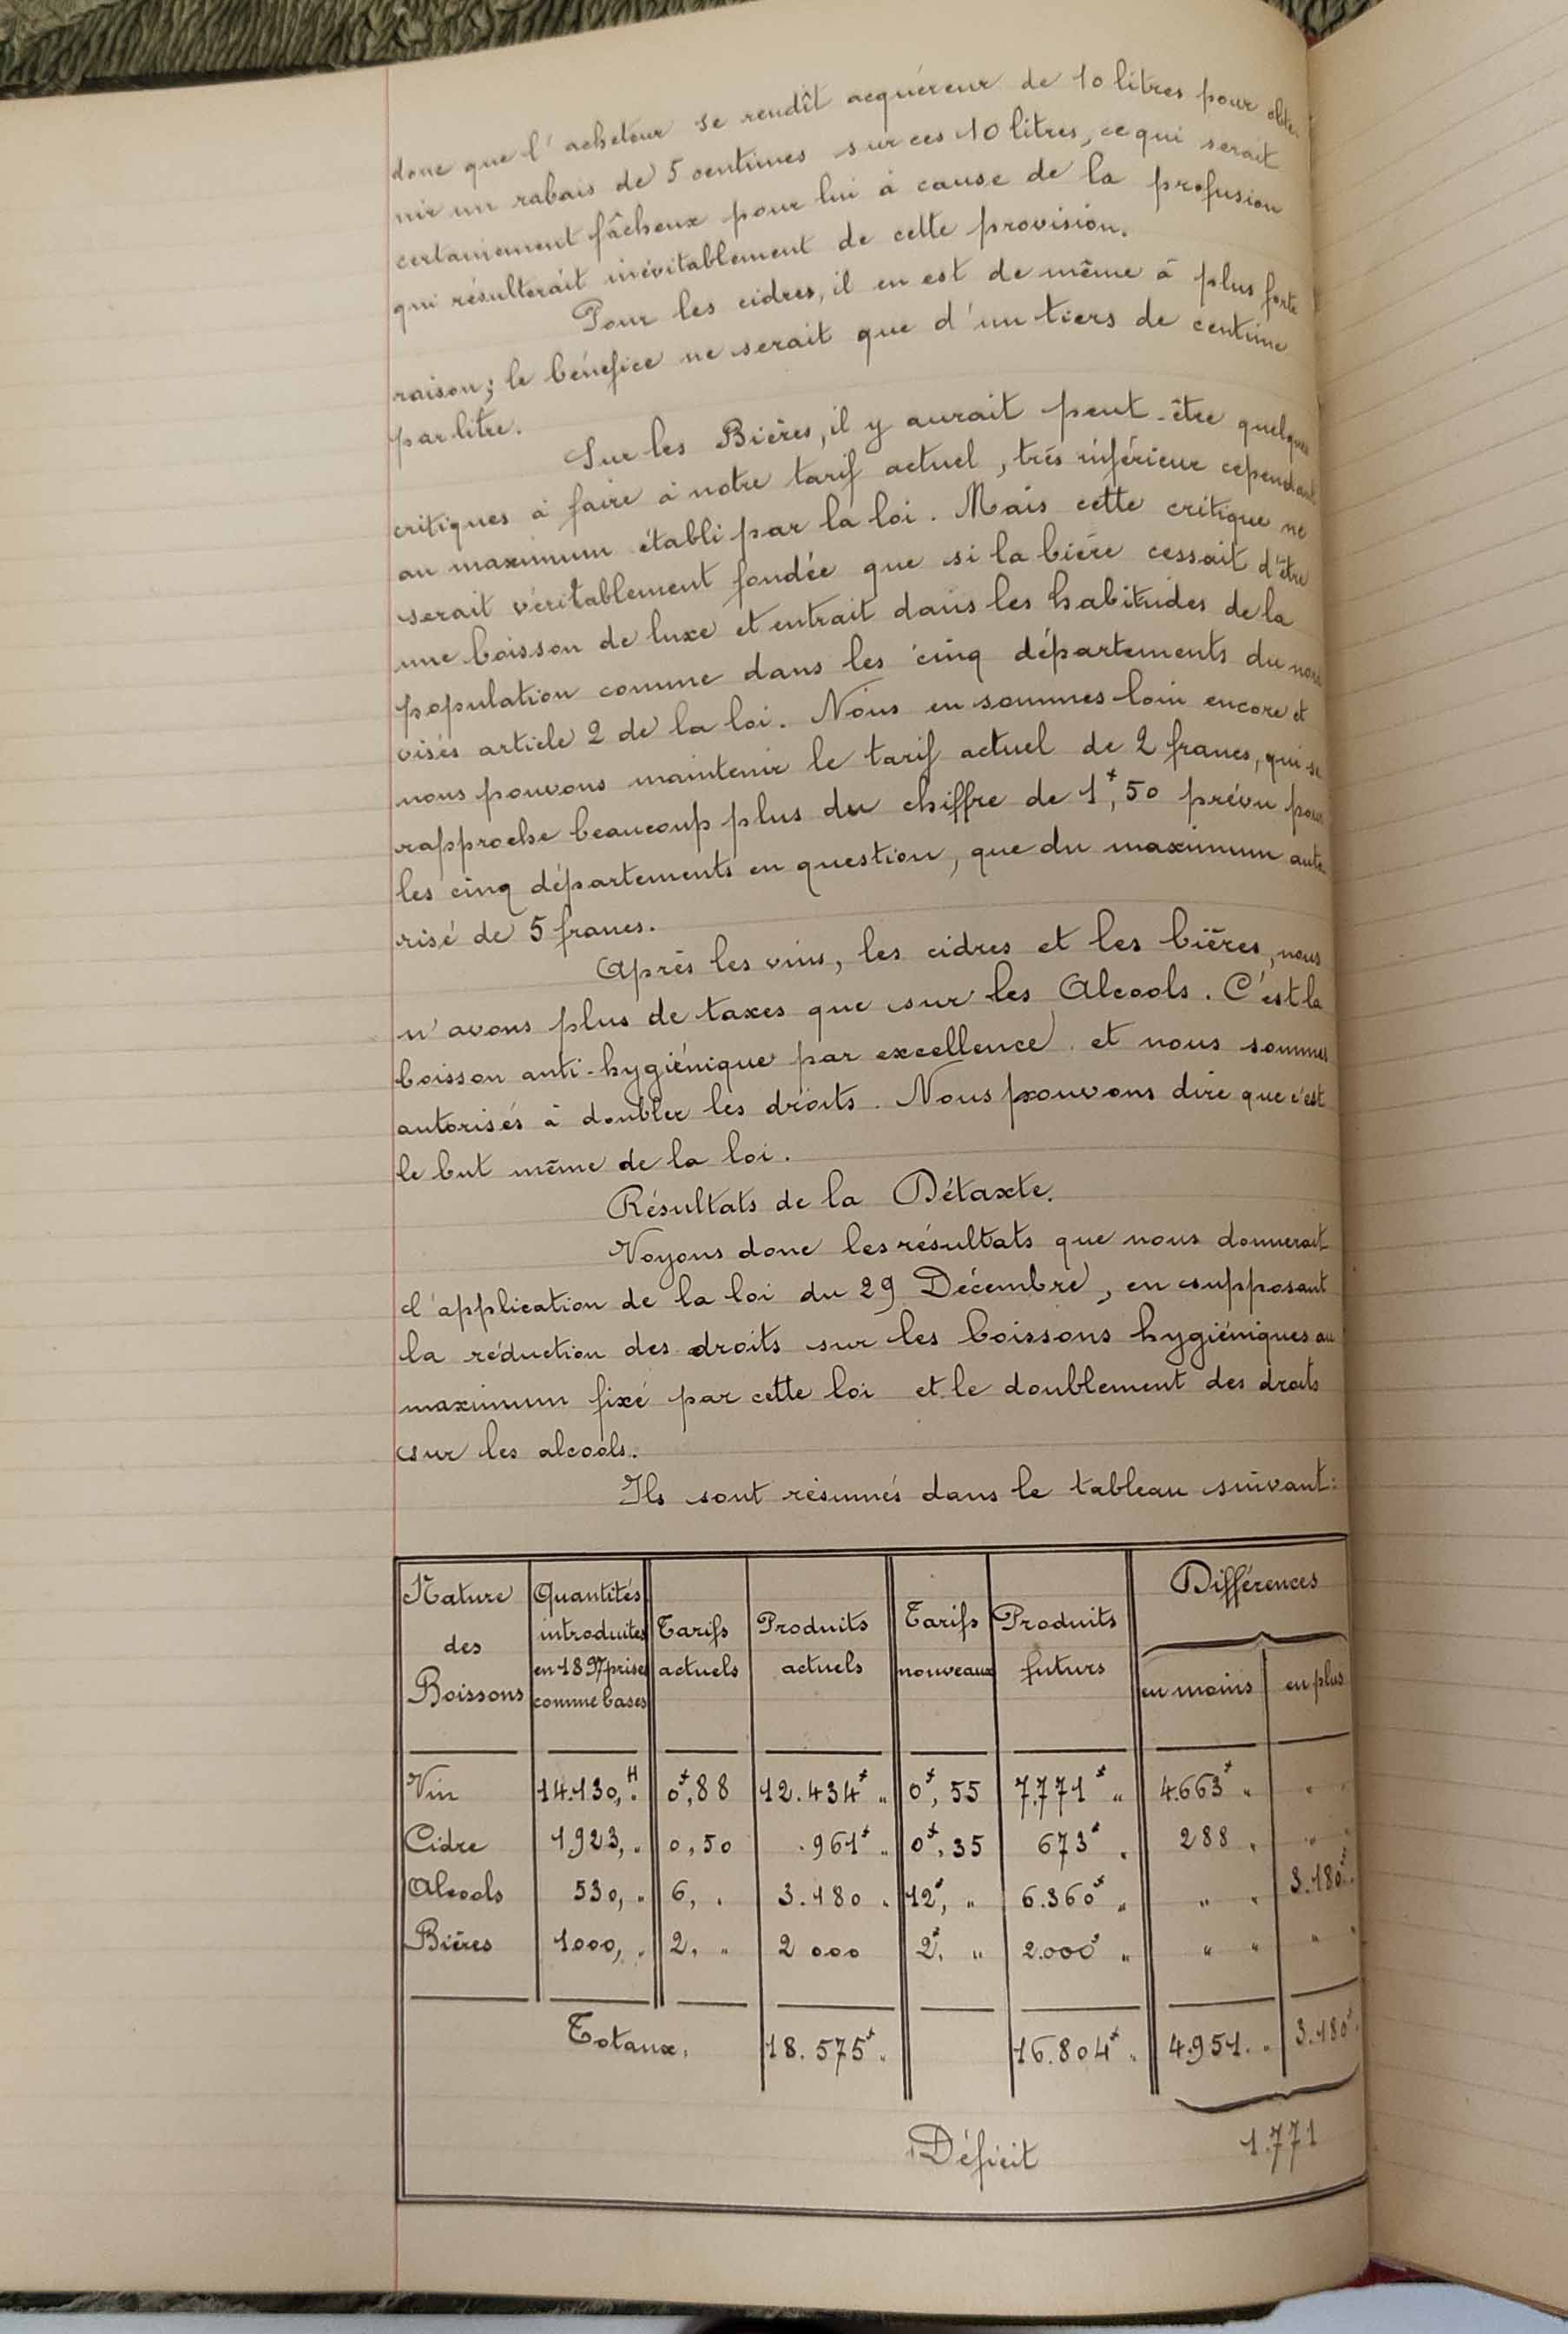 donc que l'acheteur se rendît acquéreur de 10 litres pour obte-
nir un rabais de 5 centimes sur ces 10 litres, ce qui serait
certainement fâcheux pour lui à cause de la profusion
qui résulterait inévitablement de cette provision.
Pour les cidres, il en est de même à plus forte
raison; le bénéfice ne serait que d'un tiers de centime
par litre.
Sur les Bières, il y aurait peut-être quelques
critiques à faire à notre tarif actuel, très inférieur cependant
au maximum établi par la loi. Mais cette critique ne
serait véritablement fondée que si la bière cessait d'être
une boisson de luxe et entrait dans les habitudes de la
population comme dans les cinq départements du nord
visés article 2 de la loi. Nous en sommes loin encore et
nous pouvons maintenir le tarif actuel de 2 francs, qui se
rapproche beaucoup plus du chiffre de 1f,50 prévu pour
les cinq départements en question, que du maximum auto-
risé de 5 francs.
Après les vins, les cidres et les bières, nous
n'avons plus de taxes que sur les Alcools. C'est la
boisson anti-hygiénique par excellence et nous sommes
autorisés à doubler les droits. Nous pouvons dire que c'est
le but même de la loi.
Résultats de la Détaxte.
Voyons donc les résultats que nous donnerait
l'application de la loi du 29 Décembre, en supposant
la réduction des droits sur les boissons hygiéniques au
maximum fixé par cette loi et le doublement des droits
sur les alcools.
Ils sont résumés dans le tableau suivant:
Nature des Boissons | Quantités introduites en 1897 prises comme bases | Tarifs actuels | Produits actuels | Tarifs nouveaux | Produits futurs | Différences en moins | en plus
Vin 14.130,H " 0f,88 12.434f " 0f,55 7.771f " 4.663f " " "
Cidre 1923, " 0,50 961f " 0f,35 673f " 288 " " "
Alcools 530, " 6, " 3.180 " 12f, " 6.360f " " " 3.180f "
Bières 1000, " 2, " 2 000 2f, " 2.000f " " " " "
Totaux, 18.575f " 16.804f " 4.951. " 3.180f "
Déficit 1.771